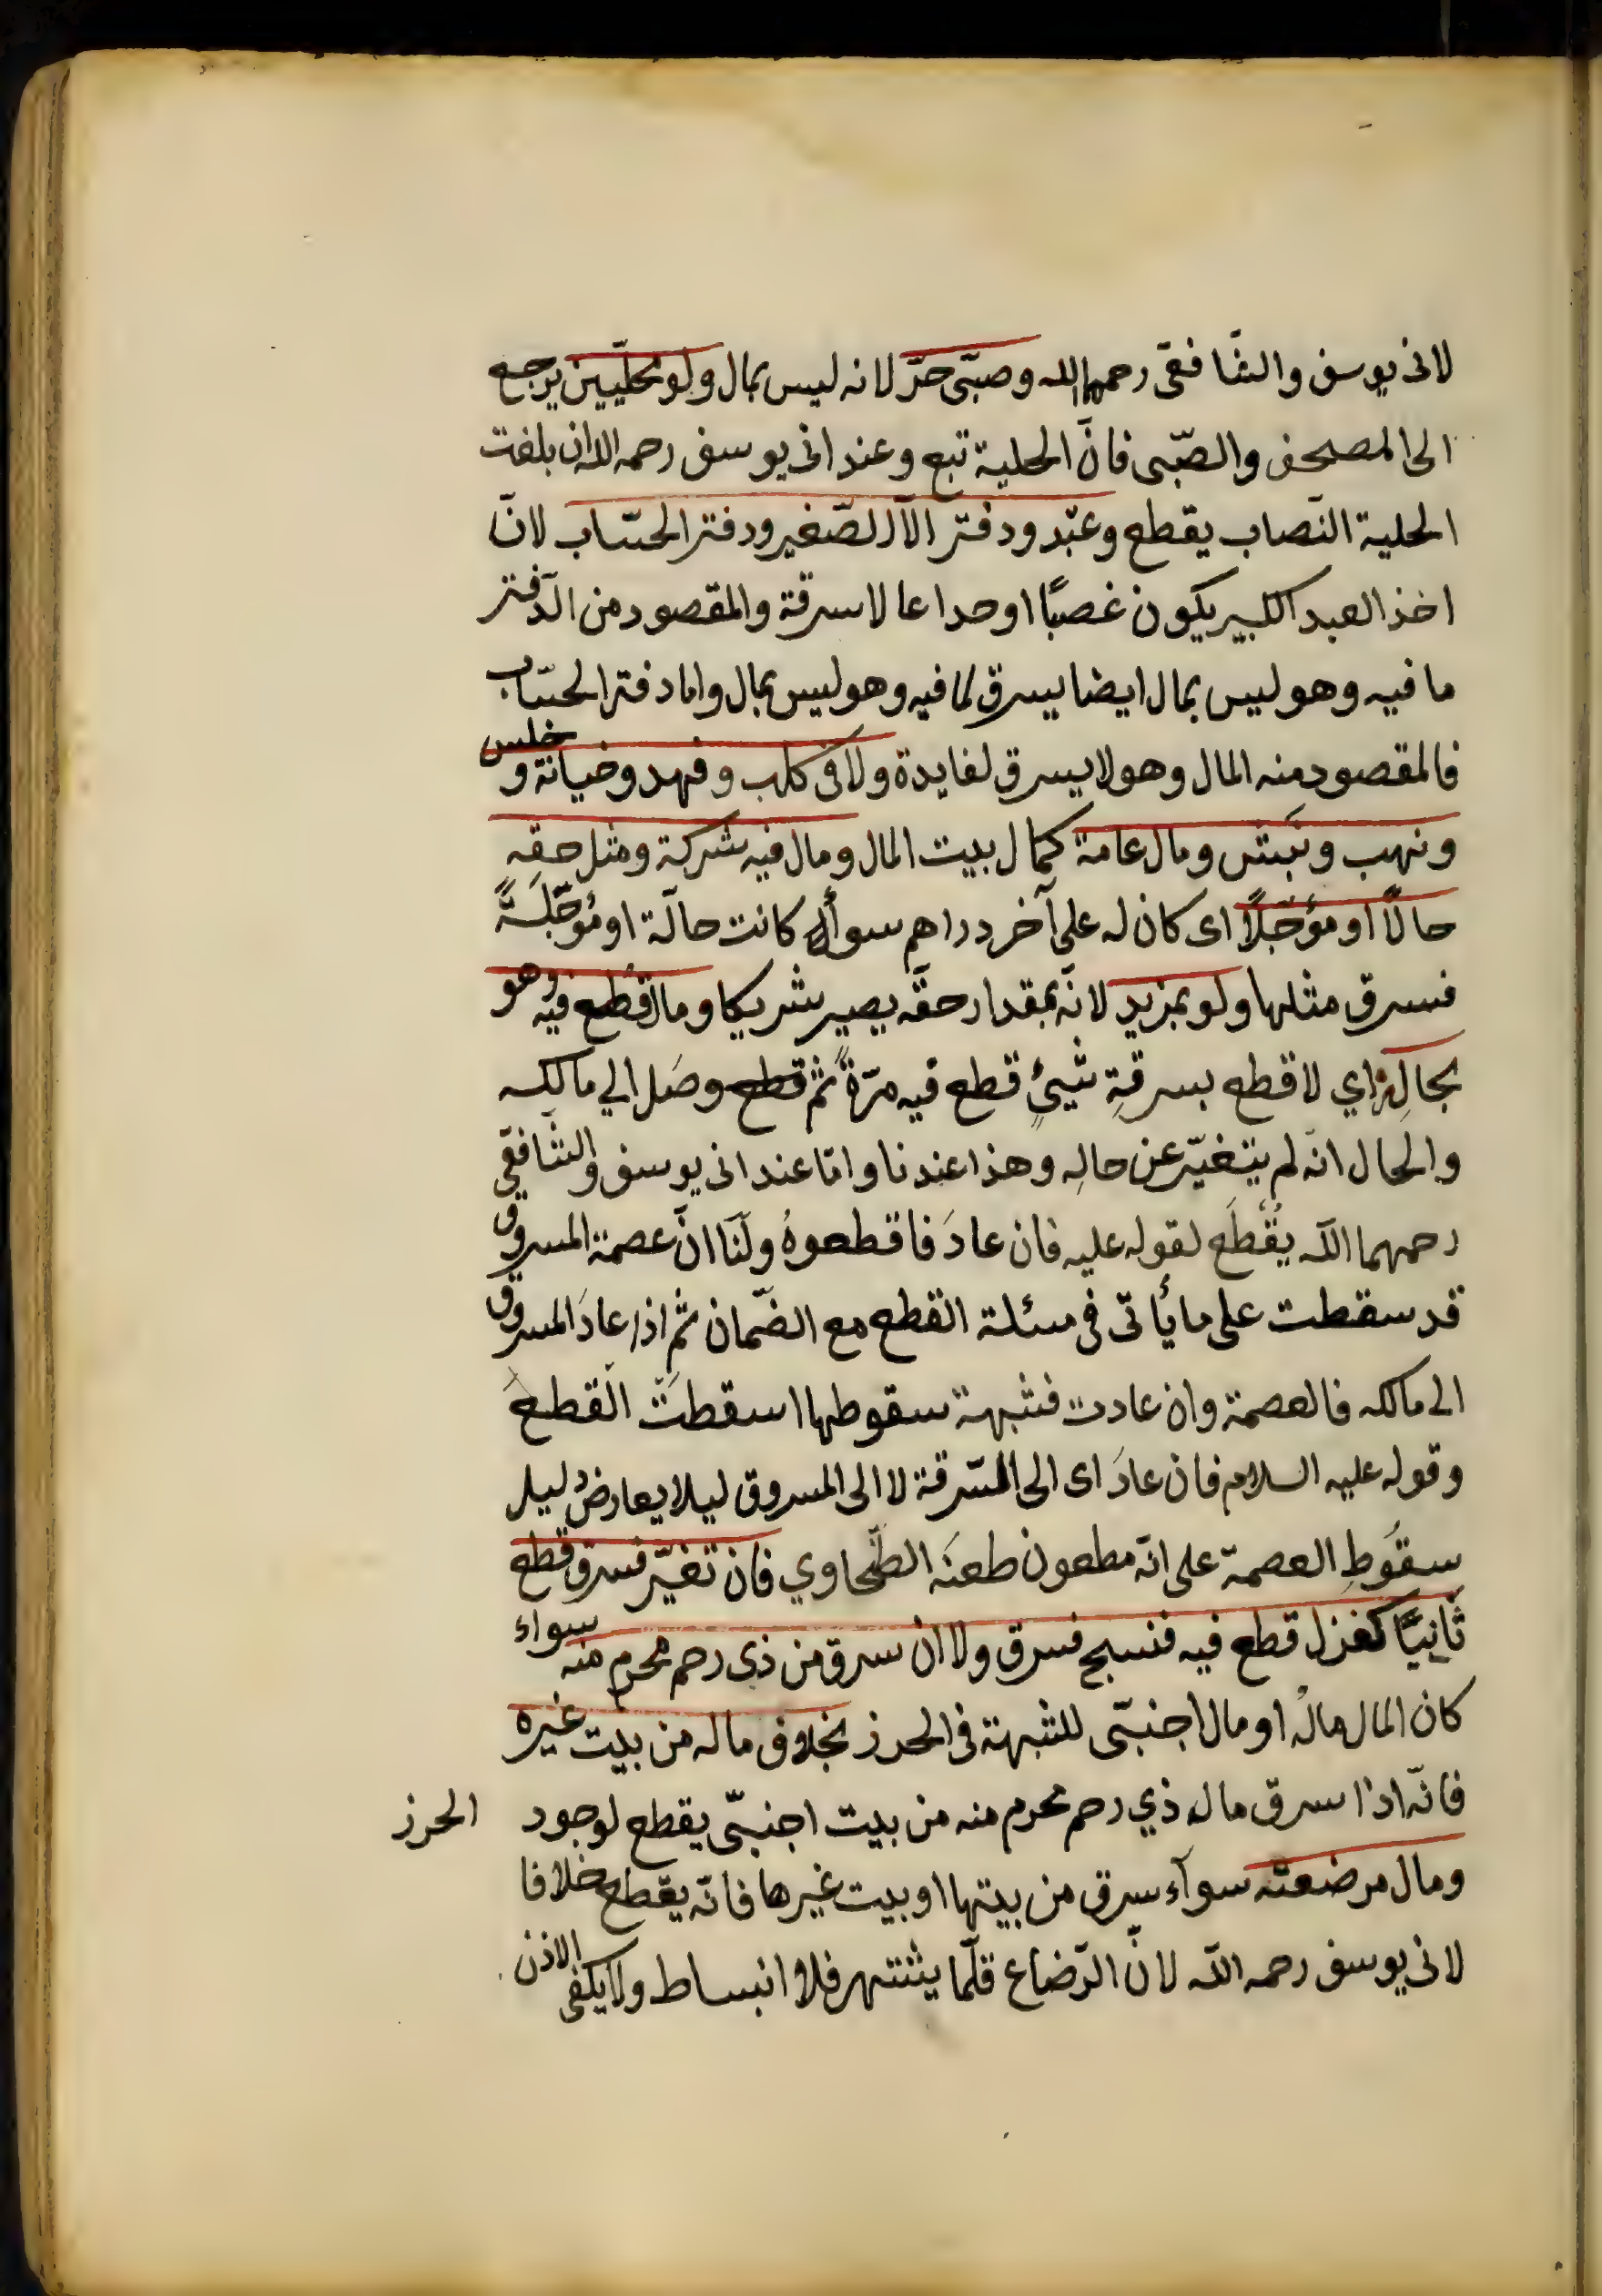 لابى يوسف والشّافعىّ رحمهما الله وصبىّ حرّ لانه ليس بمال ولو محلّيين يرجع
الى المصحف والصّبى فانّ الحلية تبع وعند ابى يوسف رحمه الله ان بلغت
الحلية النّصاب يقطع وعبد ودفتر الّا الصّغير ودفتر الحسّاب لانّ
اخذ العبد الكبير يكون غصبًا او خداعا لا سرقة والمقصود من الدّفتر
ما فيه وهو ليس بمال ايضا يسرق لما فيه وهو ليس بمال واما دفتر الحسّاب
فالمقصود منه المال وهو لا يسرق لفايدة ولا فى كلب وفهد وخيانة و خلس
ونهب ونبش ومال عامة كمال بيت المال ومال فيه شركة ومثل حقّه
حالًّا او مؤجّلًا اى كان له على آخر دراهم سوآء كانت حالّة او مؤجّلةً
فسرق مثلها ولو بمزيد لانّه بمقدار حقّه يصير شريكا وما قُطع فيه وهو
بحالِه اي لا قطع بسرقةِ شيئٍ قطع فيه مرّةً ثم قطع وصَل الي مالكه
والحال انّه لم يتغيّر عن حالِه وهذا عندنا وامّا عند ابى يوسف والشّافعى
رحمهما الله يُقْطَع لقوله عليه فان عادَ فاقطعوهُ ولَنَا انّ عصمة المسروق
قد سقطت على ما يأتى فى مسئلة القطع مع الضّمان ثمّ اذا عادَ المسروق
الى مالكه فالعصمة وان عادت فشبهة سقوطها اسقطَت القطعَ
وقوله عليه السلام فان عادَ اى الى السّرقة لا الى المسروق ليلا يعارض دليل
سقُوطِ العصمة على انّه مطعون طعنَه الطّحاوي فان تغيّر فسرق قطع
ثَانِيًا كغزل قطع فيه فنسج فسرق ولا ان سرق من ذى رحم محرم منه سواء
كان المال مالُه او مال اجنبىّ للشبهة فى الحرز بخلاف ماله من بيت غيره
فانّه اذا سرق مال ذي رحم محرم منه من بيت اجنبىّ يقطع لوجود الحرز
ومال مرضعته سوآء سرق من بيتها او بيت غيرها فانّه يقطع خلافا
لابى يوسف رحمه الله لانّ الرّضاع قلّما يشتهر فلا انبساط ولا يكفى الاذن